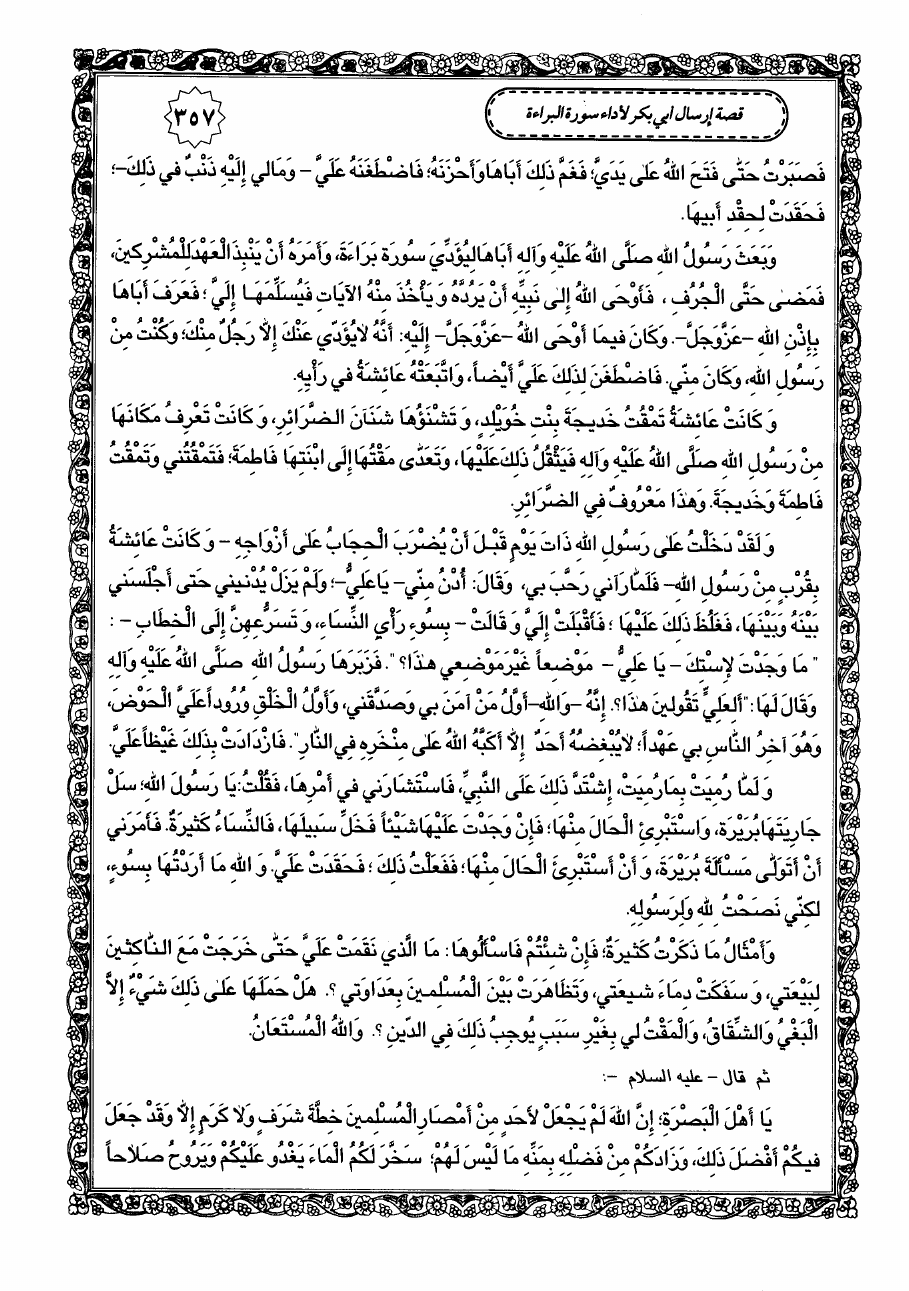 قصة إرسال أبي بكر لأداء سورة البراءة
٣٥٧
فَصَبَرْتُ حَتّٰى فَتَحَ اللهُ عَلىٰ يَدَيَّ؛ فَغَمَّ ذَلِكَ أَبَاهَا وَأَحْزَنَهُ؛ فَاضْطَغَنَهُ عَلَيَّ – وَمَالي إِلَيْهِ ذَنْبٌ في ذَلِكَ–؛
فَحَقَدَتْ لِحِقْدِ أَبيهَا.
وَبَعَثَ رَسُولُ اللهِ صَلَّى اللهُ عَلَيْهِ وَآلِهِ أَبَاهَا لِيُؤَدِّيَ سُورَةَ بَرَاءَةَ، وَأَمَرَهُ أَنْ يَنْبِذَ الْعَهْدَ لِلْمُشْرِكينَ،
فَمَضىٰ حَتَّى الْجُرُفِ، فَأَوْحَى اللهُ إِلىٰ نَبِيِّهِ أَنْ يَرُدَّهُ وَيَأْخُذَ مِنْهُ الآيَاتِ فَيُسَلِّمَهَا إِلَيَّ؛ فَعَرَفَ أَبَاهَا
بِإِذْنِ اللهِ –عَزَّوَجَلَّ–. وَكَانَ فيمَا أَوْحَى اللهُ –عَزَّوَجَلَّ– إِلَيْهِ: أَنَّهُ لاَيُؤَدّي عَنْكَ إِلاَّ رَجُلٌ مِنْكَ؛ وَكُنْتُ مِنْ
رَسُولِ اللهِ، وَكَانَ مِنّي. فَاضْطَغَنَ لِذَلِكَ عَلَيَّ أَيْضاً، وَاتَّبَعَتْهُ عَائِشَةُ في رَأْيِهِ.
وَكَانَتْ عَائِشَةُ تَمْقُتُ خَديجَةَ بِنْتِ خُوَيْلِدٍ، وَتَشْنَؤُهَا شَنَآنَ الضَّرَائِرِ، وَكَانَتْ تَعْرِفُ مَكَانَهَا
مِنْ رَسُولِ اللهِ صَلَّى اللهُ عَلَيْهِ وَآلِهِ فَيَثْقُلُ ذَلِكَ عَلَيْهَا، وَتَعَدّٰى مَقْتُهَا إِلَى ابْنَتِهَا فَاطِمَةَ؛ فَتَمْقُتُني وَتَمْقُتُ
فَاطِمَةَ وَخَديجَةَ. وَهٰذَا مَعْرُوفٌ فِي الضَّرَائِرِ.
وَلَقَدْ دَخَلْتُ عَلىٰ رَسُولِ اللهِ ذَاتَ يَوْمٍ قَبْلَ أَنْ يُضْرَبَ الْحِجَابُ عَلىٰ أَزْوَاجِهِ – وَكَانَتْ عَائِشَةُ
بِقُرْبٍ مِنْ رَسُولِ اللهِ– فَلَمَّا رَآني رَحَّبَ بي، وَقَالَ: أُدْنُ مِنّي– يَاعَلِيُّ–؛ وَلَمْ يَزَلْ يُدْنيني حَتّى أَجْلَسَني
بَيْنَهُ وَبَيْنَهَا، فَغَلُظَ ذَلِكَ عَلَيْهَا؛ فَأَقْبَلَتْ إِلَيَّ وَقَالَتْ – بِسُوءِ رَأْيِ النِّسَاءِ، وَتَسَرُّعِهِنَّ إِلَى الْخِطَابِ – :
" مَا وَجَدْتَ لإِسْتِكَ – يَا عَلِيُّ – مَوْضِعاً غَيْرَ مَوْضِعي هٰذَا؟ ". فَزَبَرَهَا رَسُولُ اللهِ صَلَّى اللهُ عَلَيْهِ وَآلِهِ
وَقَالَ لَهَا: "أَلِعَلِيٍّ تَقُولينَ هٰذَا؟. إِنَّهُ –وَاللهِ–أَوَّلُ مَنْ آمَنَ بي وَصَدَّقَني، وَأَوَّلُ الْخَلْقِ وُرُوداً عَلَيَّ الْحَوْضَ،
وَهُوَ آخِرُ النَّاسِ بي عَهْداً؛ لاَيُبْغِضُهُ أَحَدٌ إِلاَّ أَكَبَّهُ اللهُ عَلىٰ مِنْخَرِهِ فِي النَّارِ". فَازْدَادَتْ بِذَلِكَ غَيْظاً عَلَيَّ.
وَلَمَّا رُمِيَتْ بِمَا رُمِيَتْ، إِشْتَدَّ ذَلِكَ عَلَى النَّبِيِّ، فَاسْتَشَارَني في أَمْرِهَا، فَقُلْتُ: يَا رَسُولَ اللهِ؛ سَلْ
جَارِيَتَهَا بُرَيْرَةَ، وَاسْتَبْرِئِ الْحَالَ مِنْهَا؛ فَإِنْ وَجَدْتَ عَلَيْهَا شَيْئاً فَخَلِّ سَبيلَهَا، فَالنِّسَاءُ كَثيرَةٌ. فَأَمَرَني
أَنْ أَتَوَلّٰى مَسْأَلَةَ بُرَيْرَةَ، وَأَنْ أَسْتَبْرِئَ الْحَالَ مِنْهَا؛ فَفَعَلْتُ ذَلِكَ؛ فَحَقَدَتْ عَلَيَّ. وَاللهِ مَا أَرَدْتُهَا بِسُوءٍ،
لكِنّي نَصَحْتُ لِلهِ وَلِرَسُولِهِ.
وَأَمْثَالُ مَا ذَكَرْتُ كَثيرَةٌ؛ فَإِنْ شِئْتُمْ فَاسْأَلُوهَا: مَا الَّذي نَقَمَتْ عَلَيَّ حَتّٰى خَرَجَتْ مَعَ النَّاكِثينَ
لِبَيْعَتي، وَسَفَكَتْ دِمَاءَ شيعَتي، وَتَظَاهَرَتْ بَيْنَ الْمُسْلِمينَ بِعَدَاوَتي؟. هَلْ حَمَلَهَا عَلىٰ ذَلِكَ شَيْءٌ إِلاَّ
الْبَغْيُ وَالشِّقَاقُ، وَالْمَقْتُ لي بِغَيْرِ سَبَبٍ يُوجِبُ ذَلِكَ فِي الدّينِ؟. وَاللهُ الْمُسْتَعَانُ.
ثم قال – عليه السلام –:
يَا أَهْلَ الْبَصْرَةِ؛ إِنَّ اللهَ لَمْ يَجْعَلْ لأَحَدٍ مِنْ أَمْصَارِ الْمُسْلِمينَ خِطَّةَ شَرَفٍ وَلاَ كَرَمٍ إِلاَّ وَقَدْ جَعَلَ
فيكُمْ أَفْضَلَ ذَلِكَ، وَزَادَكُمْ مِنْ فَضْلِهِ بِمَنِّهِ مَا لَيْسَ لَهُمْ؛ سَخَّرَ لَكُمُ الْمَاءَ يَغْدُو عَلَيْكُمْ وَيَرُوحُ صَلاَحاً